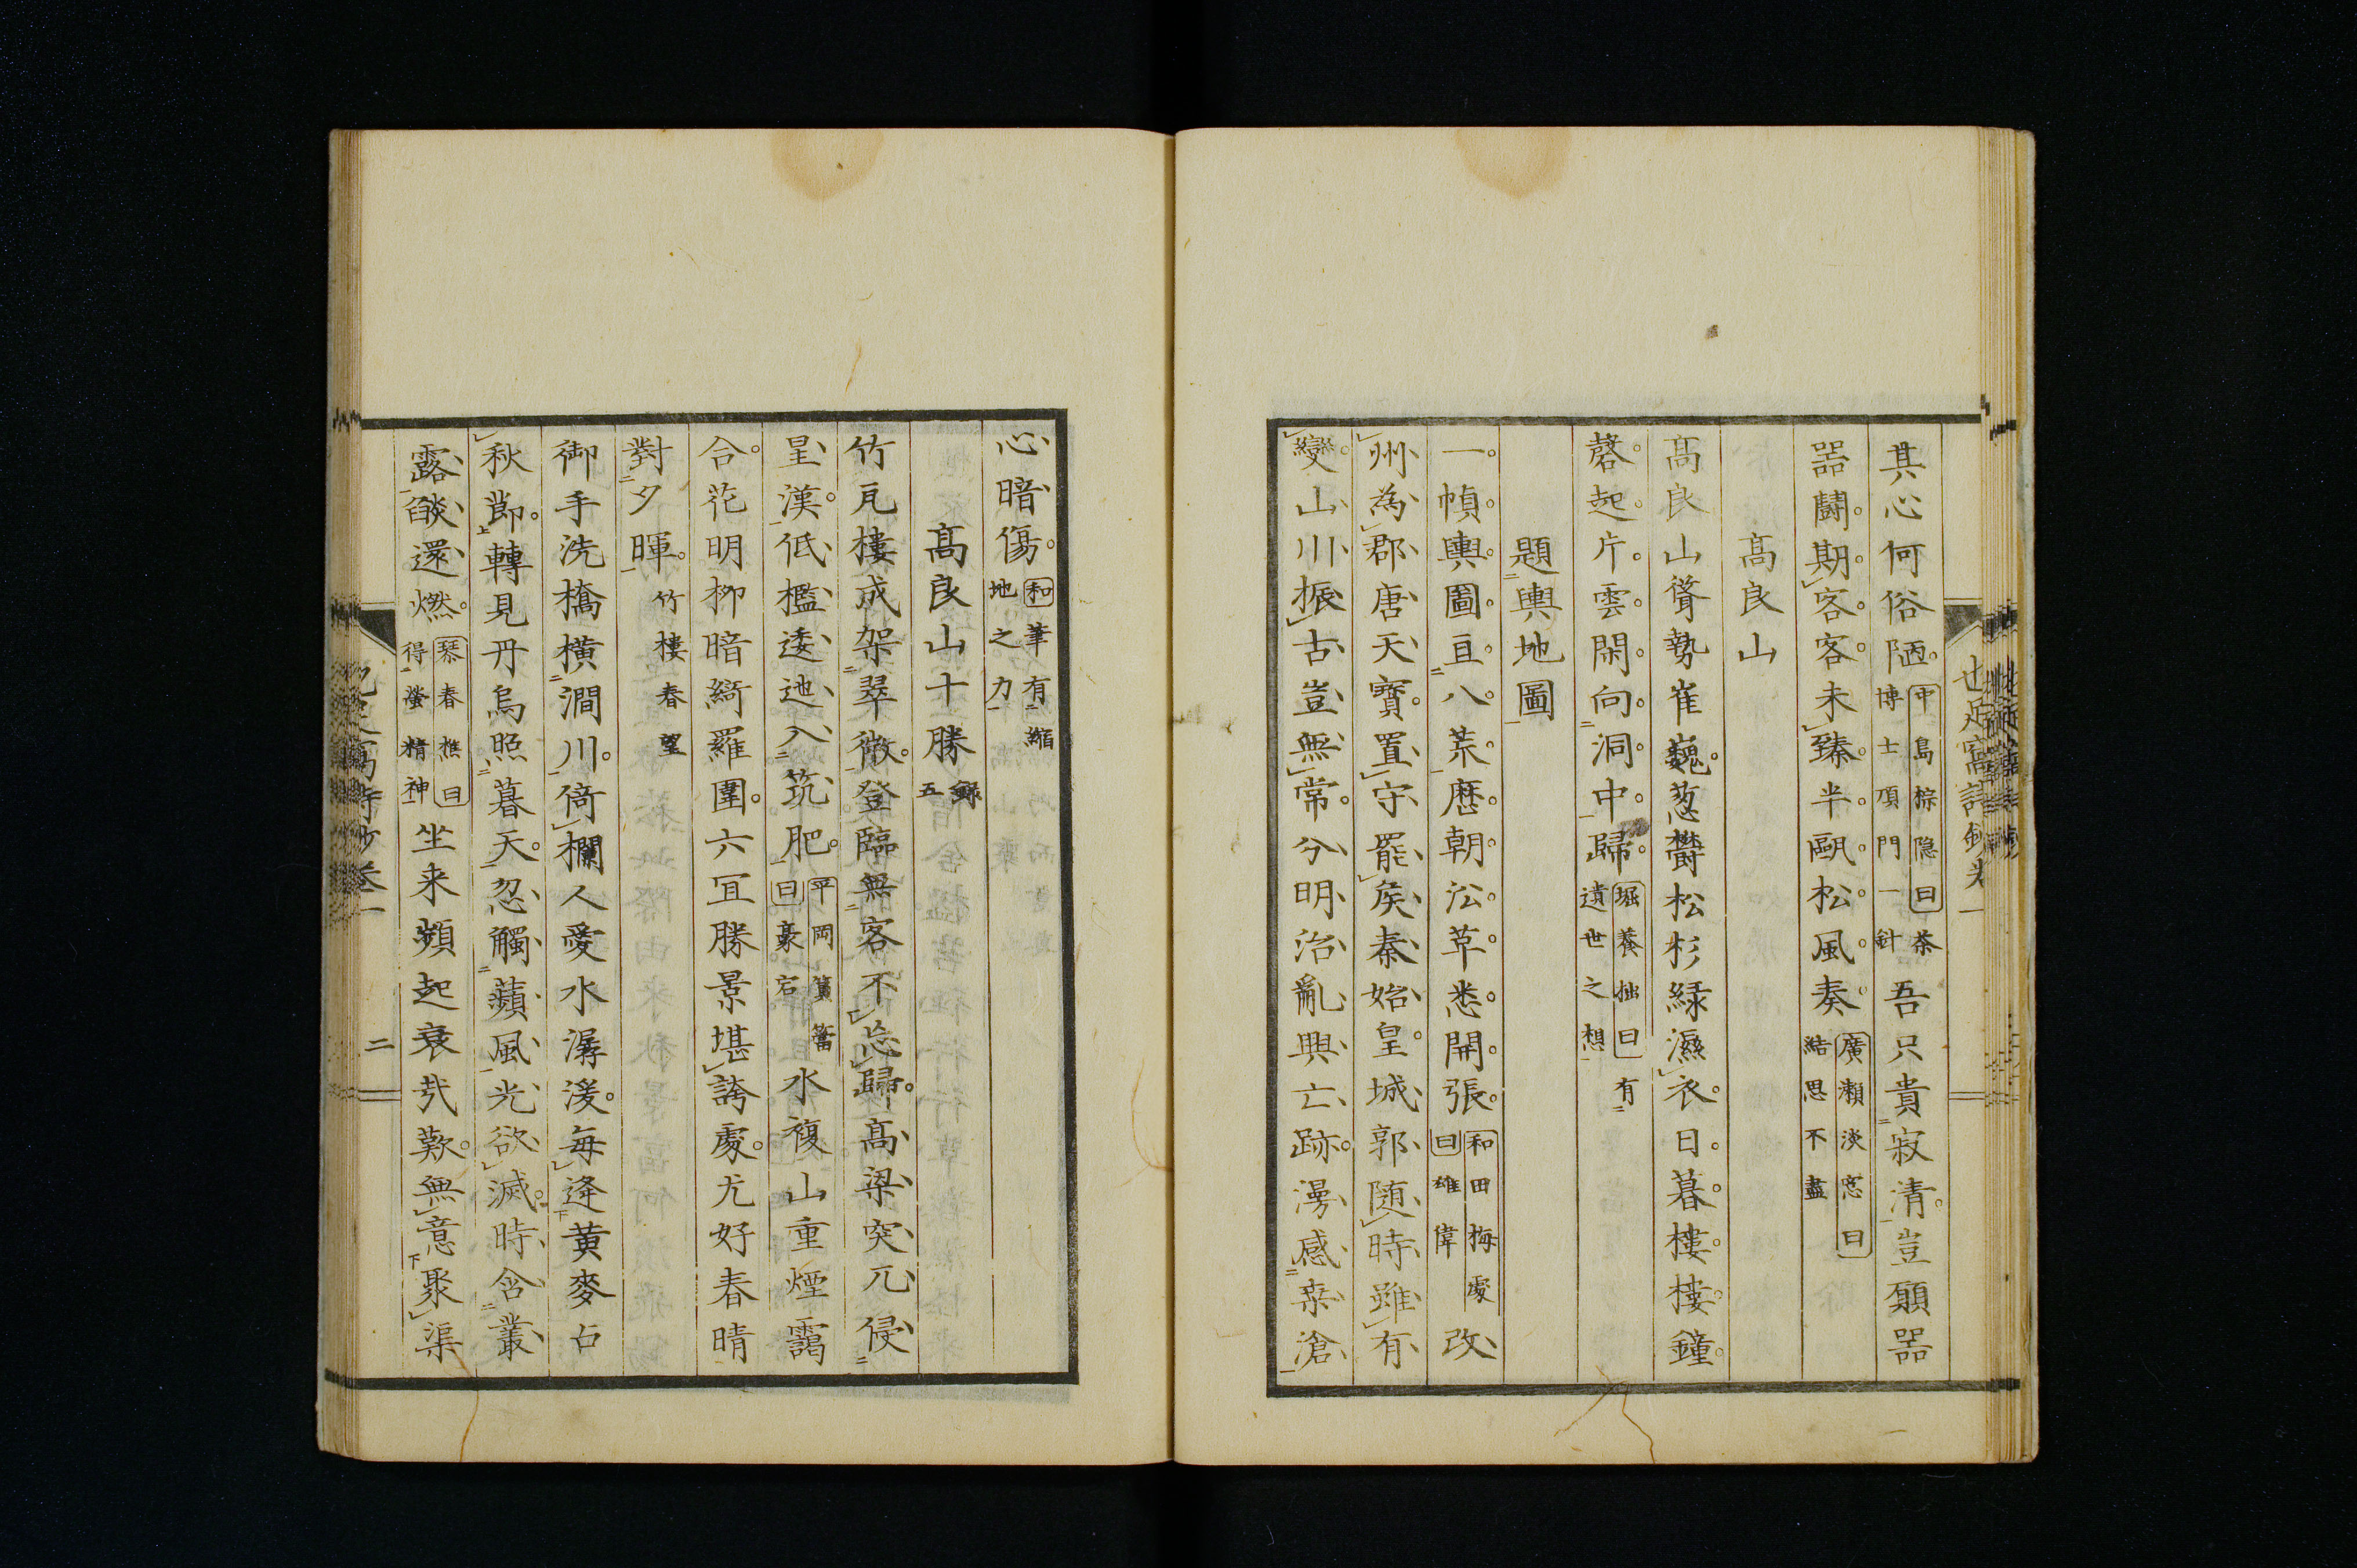 其心何俗陋中島棕隠曰茶博士頂門一針吾只貴寂清豈願噐
噐鬪期客客未臻半甌松風奏廣瀬淡窓曰結思不盡
髙良山
髙良山聳勢崔巍葱欝松杉緑濕衣日暮樓樓鐘
磬起片雲閑向洞中歸堀養拙曰有遺世之想
題輿地圖
一幀輿圖亘八荒歴朝㳂革悉開張和田梅處曰雄偉改
州為郡唐天寳置守罷矦秦始皇城郭随時雖有
變山川振古豈無常分明治亂興亡跡漫感桒滄
心暗傷和筆有縮地之力
髙良山十勝錄五
竹瓦樓成架翠微登臨無客不忘歸髙梁突兀侵
星漢低檻逶迆入筑肥平岡篔簹曰豪宕水複山重煙靄
合花明柳暗綺羅圍六冝勝景堪誇處尤好春晴
對夕暉竹樓春望
御手洗橋橫澗川倚欄人愛水潺湲每逢黃麥占
秋節轉見丹烏照暮天忽觸蘋風光欲滅時含叢
露燄還燃琴春樵曰得螢精神坐来頻起衰㢤歎無意聚渠
二